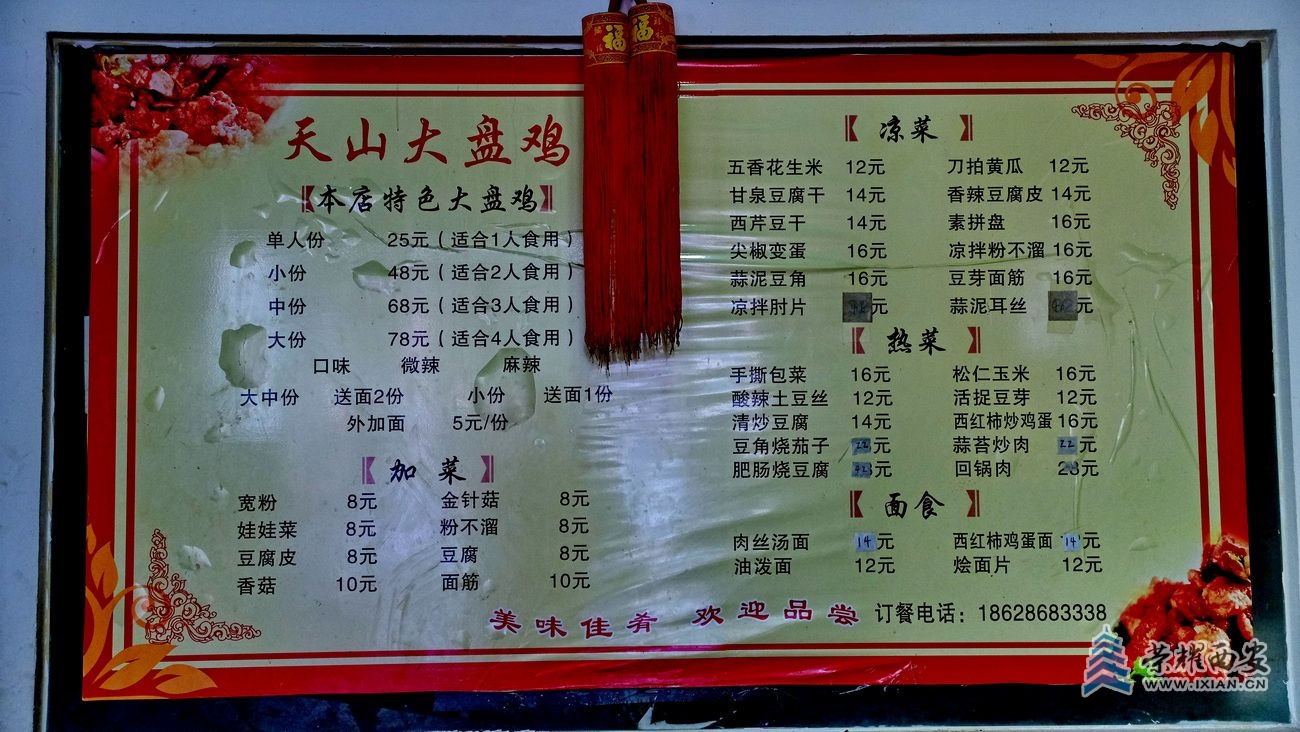 福 福
天山大盘鸡
【本店特色大盘鸡】
单人份 25元（适合1人食用）
小份 48元（适合2人食用）
中份 68元（适合3人食用）
大份 78元（适合4人食用）
口味 微辣 麻辣
大中份 送面2份 小份 送面1份
外加面 5元/份
【加菜】
宽粉 8元 金针菇 8元
娃娃菜 8元 粉不溜 8元
豆腐皮 8元 豆腐 8元
香菇 10元 面筋 10元
【凉菜】
五香花生米 12元 刀拍黄瓜 12元
甘泉豆腐干 14元 香辣豆腐皮 14元
西芹豆干 14元 素拼盘 16元
尖椒变蛋 16元 凉拌粉不溜 16元
蒜泥豆角 16元 豆芽面筋 16元
凉拌肘片 元 蒜泥耳丝 元
【热菜】
手撕包菜 16元 松仁玉米 16元
酸辣土豆丝 12元 活捉豆芽 12元
清炒豆腐 14元 西红柿炒鸡蛋 16元
豆角烧茄子 22元 蒜苔炒肉 22元
肥肠烧豆腐 元 回锅肉 元
【面食】
肉丝汤面 14元 西红柿鸡蛋面 14元
油泼面 12元 烩面片 12元
美味佳肴 欢迎品尝 订餐电话：18628683338
荣耀西安
WWW.IXIAN.CN